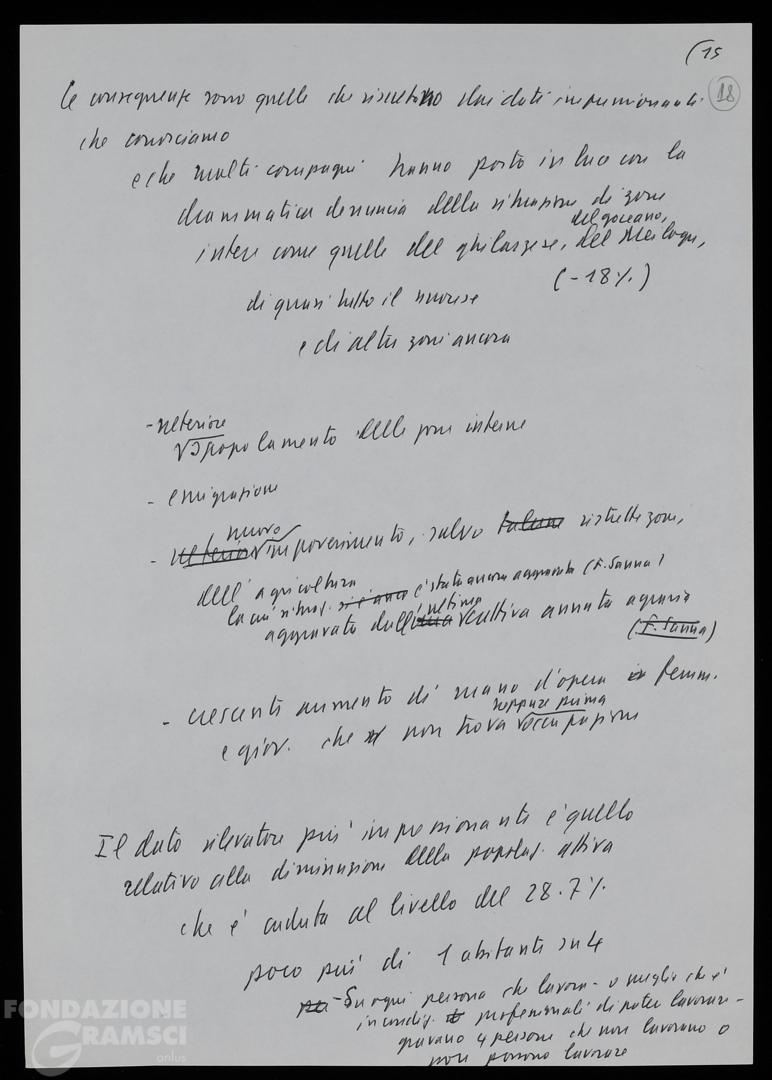 (15
18
le conseguenze sono quelle che risultano dai dati impressionanti
che conosciamo
e che molti compagni hanno posto in luce con la
drammatica denuncia della situazione di zone
del goceano,
intere come quelle del ghilarzese, del Meilogu,
(-18%)
di quasi tutto il nuorese
e di altre zone ancora
- ulteriore
spopolamento delle zone interne
- emigrazione
nuovo
- ulteriore impoverimento, salvo talune ristrette zone,
dell'agricoltura
la cui situaz. è stata ancora aggravata (F. Sanna)
ultima
aggravata dall' cattiva annata agraria
(F. Sanna)
- crescente aumento di mano d'opera femm.
neppure prima
e giov. che non trova occupazione
Il dato rilevatore più impressionante è quello
relativo alla diminuzione della popolaz. attiva
che è caduta al livello del 28.7%
poco più di 1 abitante su 4
per - Su ogni persona che lavora - o meglio che è
in condiz. professionali di poter lavorare -
gravano 4 persone che non lavorano o
non possono lavorare
FONDAZIONE
GRAMSCI
onlus